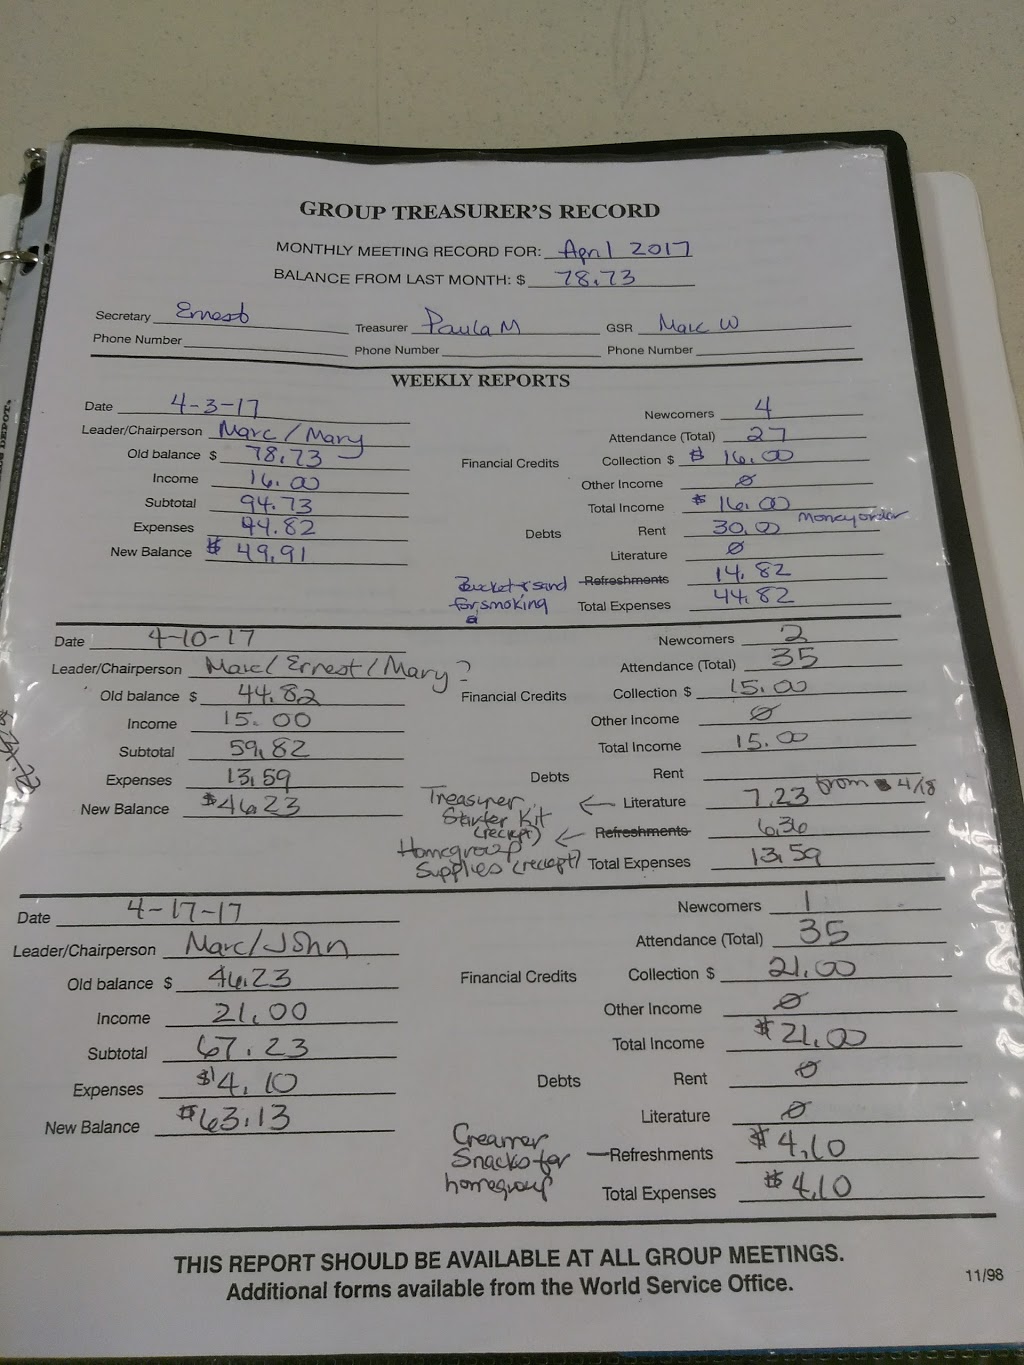 GROUP TREASURER'S RECORD
MONTHLY MEETING RECORD FOR: April 2017
BALANCE FROM LAST MONTH: $ 78.73
Secretary Ernest Treasurer Paula M GSR Marc W
Phone Number Phone Number Phone Number
WEEKLY REPORTS
Date 4-3-17 Newcomers 4
Leader/Chairperson Marc/Mary Attendance (Total) 27
Old balance $ 78.73 Financial Credits Collection $ $ 16.00
Income 16.00 Other Income Ø
Subtotal 94.73 Total Income $ 16.00
Expenses 44.82 Debts Rent 30.00 Money order
New Balance $ 49.91 Literature Ø
Bucket & sand Refreshments 14.82
for smoking Total Expenses 44.82
Date 4-10-17 Newcomers 2
Leader/Chairperson Marc/Ernest/Mary? Attendance (Total) 35
Old balance $ 44.82 Financial Credits Collection $ 15.00
Income 15.00 Other Income Ø
Subtotal 59.82 Total Income 15.00
Expenses 13.59 Debts Rent
New Balance $46.23 Treasurer Literature 7.23 from 4/18
Starter Kit
(reciept) Refreshments 6.36
Homegroup
Supplies (reciept) Total Expenses 13.59
Date 4-17-17 Newcomers 1
Leader/Chairperson Marc/John Attendance (Total) 35
Old balance $ 46.23 Financial Credits Collection $ 21.00
Income 21.00 Other Income Ø
Subtotal 67.23 Total Income $21.00
Expenses $4.10 Debts Rent Ø
New Balance $63.13 Literature Ø
Creamer
Snacks for Refreshments $4.10
homegroup Total Expenses $4.10
THIS REPORT SHOULD BE AVAILABLE AT ALL GROUP MEETINGS.
Additional forms available from the World Service Office.
11/98